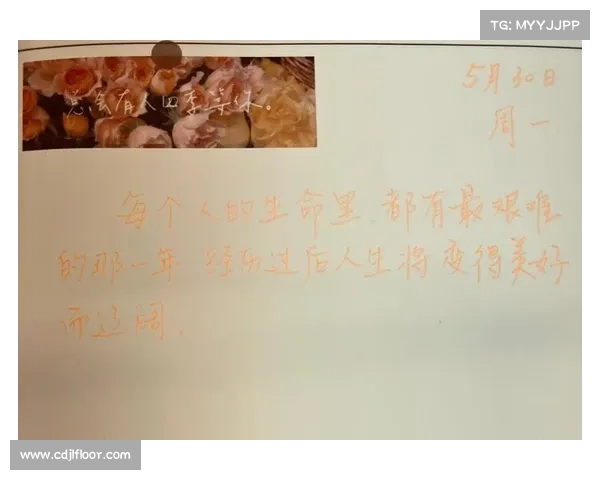 TG: MYYJJPP
5月30日
周一
总会有人四季染你。
每个人的生命里,都有最艰难
的那一年 经历过后人生将变得美好
而辽阔.
www.cdjlfloor.com